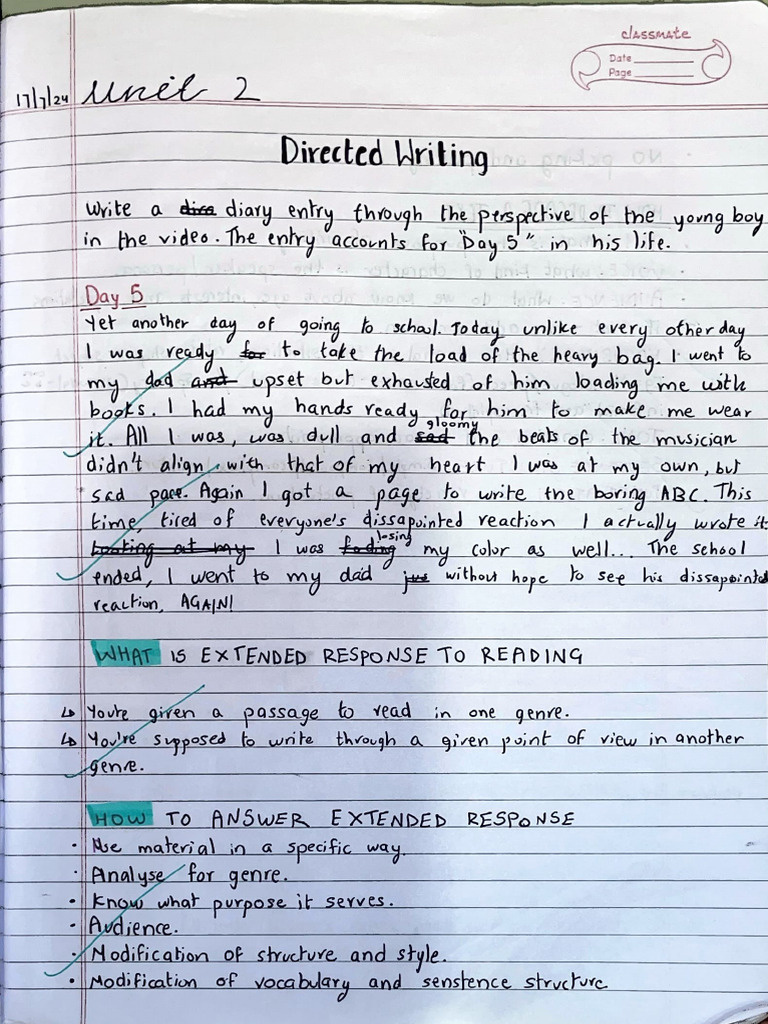 classmate
Date
Page
17/7/24 Unit 2
Directed Writing
Write a diary entry through the perspective of the young boy
in the video. The entry accounts for "Day 5" in his life.
Day 5
Yet another day of going to school. Today unlike every other day
I was ready to take the load of the heavy bag. I went to
my dad upset but exhausted of him loading me with
books. I had my hands ready for him to make me wear
it. All I was, was dull and gloomy the beats of the musician
didn't align with that of my heart I was at my own, but
sad pace. Again I got a page to write the boring ABC. This
time, tired of everyone's dissapointed reaction I actually wrote it
I was losing my color as well... The school
ended, I went to my dad without hope to see his dissapointed
reaction, AGAIN!
WHAT IS EXTENDED RESPONSE TO READING
↳ You're given a passage to read in one genre.
↳ You're supposed to write through a given point of view in another
genre.
HOW TO ANSWER EXTENDED RESPONSE
• Use material in a specific way.
• Analyse for genre.
• Know what purpose it serves.
• Audience.
• Modification of structure and style.
• Modification of vocabulary and senstence structure